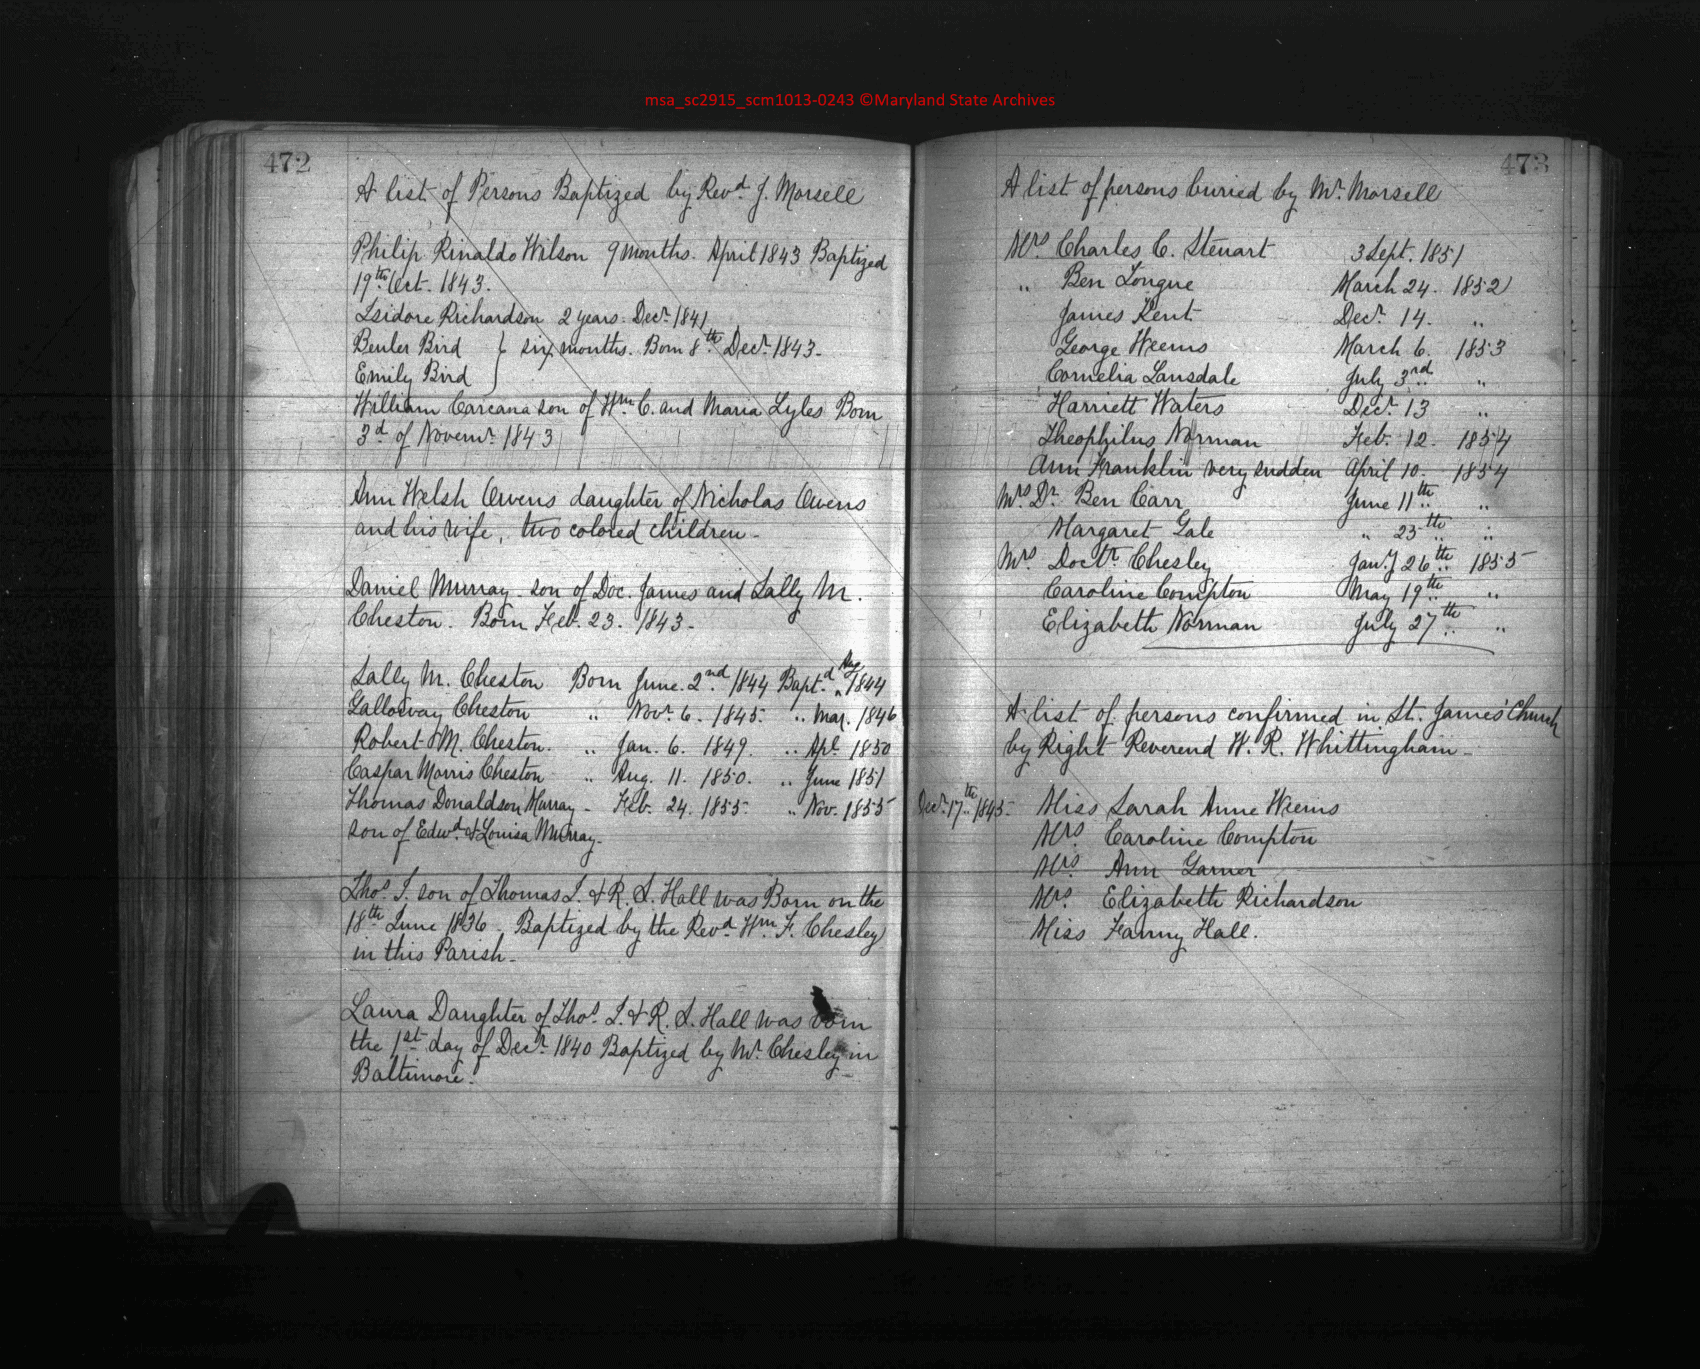 msa_sc2915_scm1013-0243 ©Maryland State Archives
472
A list of Persons Baptized by Revd. J. Morsell
Philip Rinaldo Wilson 9 months. April 1843 Baptized
19th Oct. 1843.
Isidore Richardson 2 years. Decr. 1841
Beuler Bird } six months. Born 8th. Decr. 1843.
Emily Bird
William Carcana son of Wm. C. and Maria Lyles Born
3d of Novemr. 1843
Ann Welsh Owens daughter of Nicholas Owens
and his wife, two colored children-
Daniel Murray son of Doc. James and Sally M.
Cheston. Born Feb. 23. 1843-
Sally M. Cheston Born June. 2nd. 1844 Bapt.d Aug „ 1844
Galloway Cheston „ Novr. 6. 1845. „ Mar. 1846
Robert M. Cheston. „ Jan. 6. 1849. „ Apl. 1850
Caspar Morris Cheston „ Aug. 11. 1850. „ June 1851
Thomas Donaldson Murray - Feb. 24. 1855. „ Nov. 1855
son of Edwd. & Louisa Murray-
Thos. I. son of Thomas I. & R. S. Hall was Born on the
18th June 1836. Baptized by the Revd. Wm. F. Chesley
in this Parish-
Laura Daughter of Thos. I. & R. S. Hall was born
the 1st. day of Decr. 1840 Baptized by Mr. Chesley in
Baltimore.
473
A list of persons buried by Mr. Morsell
Mrs. Charles C. Steuart 3 Sept. 1851
„ Ben Longue March 24. 1852
James Kent Decr. 14. „
George Weems March 6. 1853
Cornelia Lansdale July 3rd „
Harriett Waters Decr. 13 „
Theophilus Norman Feb. 12. 1854
Ann Franklin very sudden April 10. 1854
Mrs. Dr. Ben Carr June 11th „
Margaret Gale „ 23th „
Mrs. Doctr. Chesley Jany 26th 1855
Caroline Compton May 19th „
Elizabeth Norman July 27th „
A list of persons confirmed in St. James' Church
by Right Reverend W. R. Whittingham-
Decr. 17th. 1845- Miss Sarah Anne Weems
Mrs. Caroline Compton
Mrs. Ann Garner
Mrs. Elizabeth Richardson
Miss Fanny Hall.